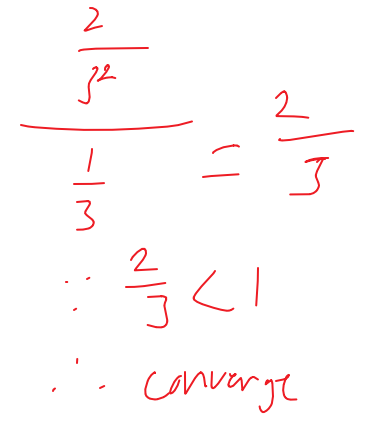 (2/3²)/(1/3) = 2/3
∵ 2/3 < 1
∴ converge